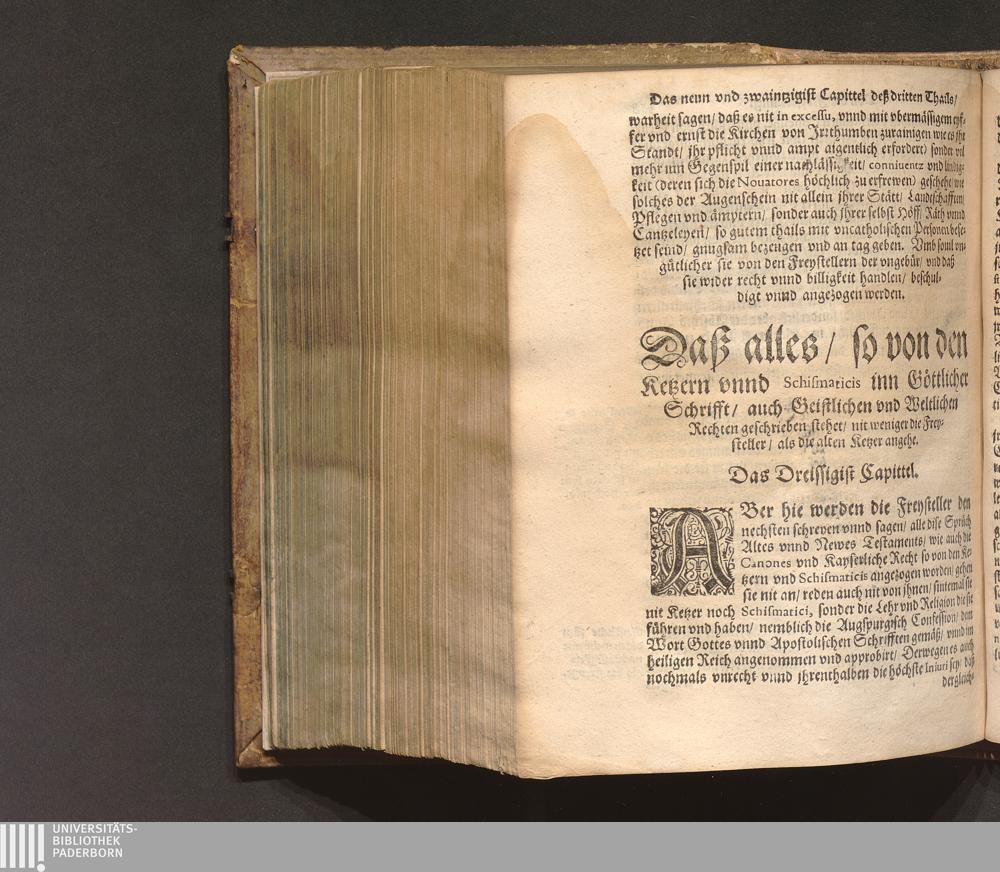 Das neun vnd zwaintzigist Capittel deß dritten Thails/
warheit sagen/ daß es nit in excessu, vnnd mit vbermässigem eyf-
fer vnd ernst die Kirchen von Irrthumben zurainigen wie es jhr
Standt/ jhr pflicht vnnd ampt aigentlich erfordert/ sonder vil
mehr im Gegenspil einer nachlässigkeit/ conniuentz vnd
keit (deren sich die Nouatores höchlich zu erfrewen) geschehe/ wie
solches der Augenschein nit allein jhrer Stätt/ Landtschafften/
Pflegen vnd ämptern/ sonder auch jhrer selbst Höff/ Räth vnnd
Cantzeleyen/ so gutem thails mit vncatholischen Personen bese-
tzet seind/ gnugsam bezeugen vnd an tag geben. Vmb souil vn-
gütlicher sie von den Freystellern der vngebür/ vnd daß
sie wider recht vnnd billigkeit handlen/ beschul-
digt vnnd angezogen werden.
Daß alles/ so von den
Ketzern vnnd Schismaticis inn Göttlicher
Schrifft/ auch Geistlichen vnd Weltlichen
Rechten geschrieben stehet/ nit weniger die Frey-
steller/ als die alten Ketzer angehe.
Das Dreissigist Capittel.
ABer hie werden die Freysteller den
nechsten schreyen vnnd sagen/ alle dise Sprüch
Altes vnnd Newes Testaments/ wie auch die
Canones vnd Kayserliche Recht so von den Ke-
tzern vnd Schismaticis angezogen worden/ gehen
sie nit an/ reden auch nit von jhnen/ sintemal sie
nit Ketzer noch Schismatici, sonder die Lehr vnd Religion die sie
führen vnd haben/ nemblich die Augspurgisch Confession/ dem
Wort Gottes vnnd Apostolischen Schrifften gemäß/ vnnd im
heiligen Reich angenommen vnd approbirt/ Derwegen es auch
nochmals vnrecht vnnd jhrenthalben die höchste Iniuri sey/ daß
dergleich-
UNIVERSITÄTS-
BIBLIOTHEK
PADERBORN